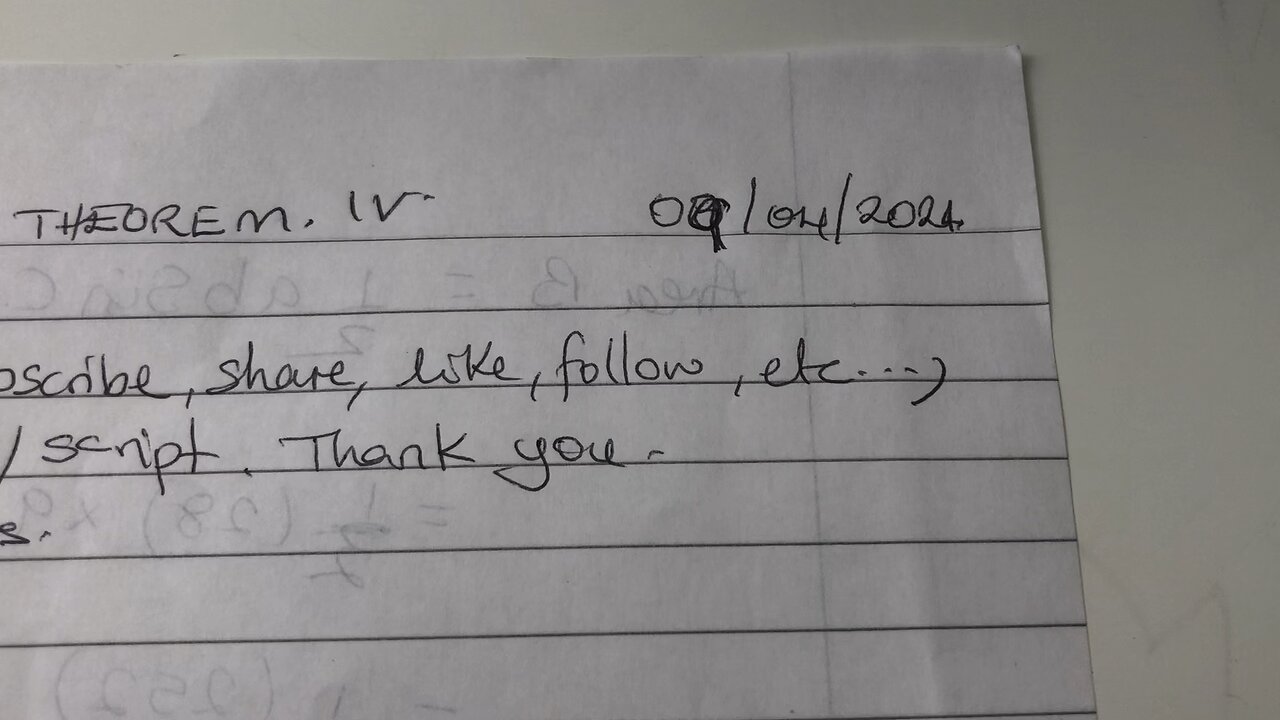 THEOREM. IV. 09/04/2024
bscribe, share, like, follow, etc...,
/ script. Thank you.
s.